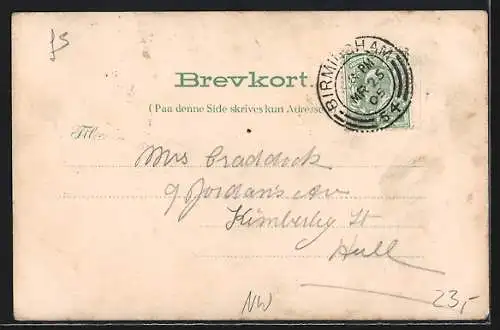 JS
BIRMINGHAM
PM
MR 25
05
54
Brevkort.
(Paa denne Side skrives kun Adresse
Til
Mrs Craddock
9 Jordan's Av
Kimberley St
Hull
NW
23,-